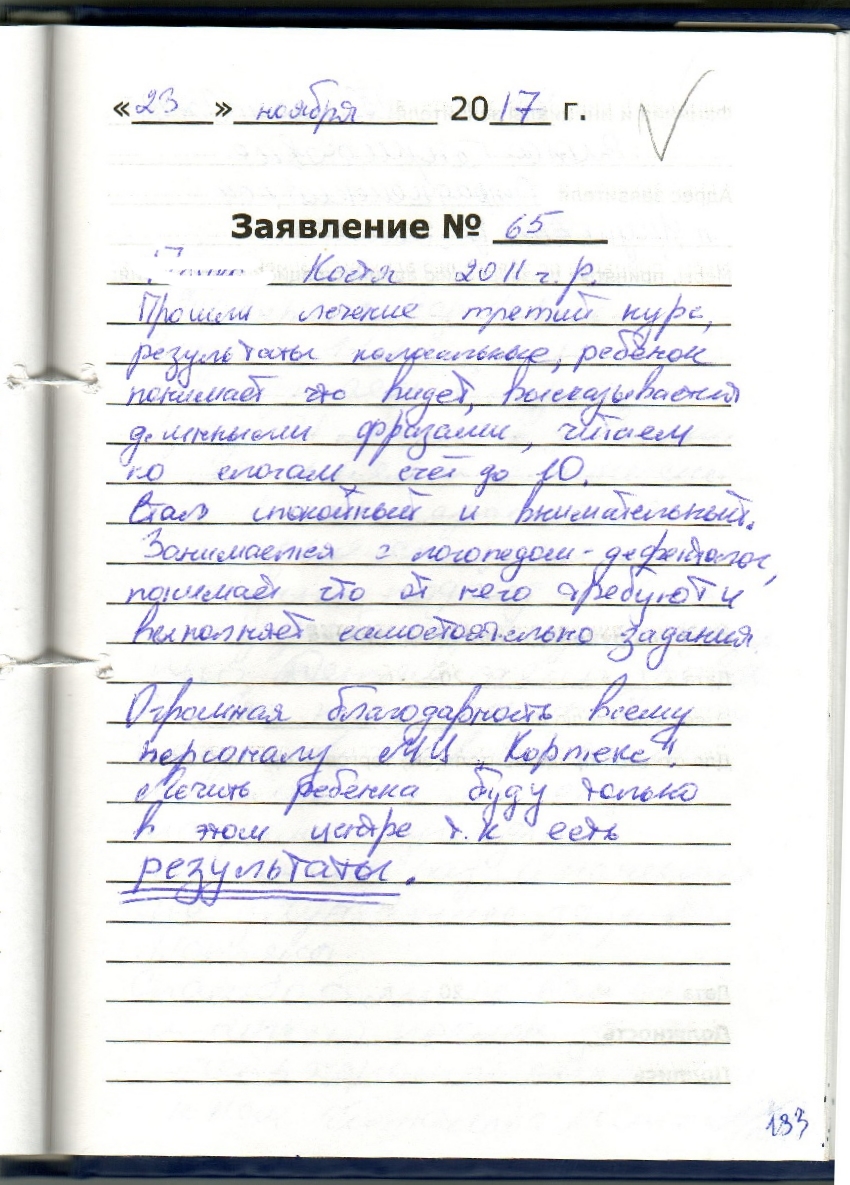 «23» ноября 2017 г.
Заявление № 65
Костя 2011 г.р.
Прошли лечение третий курс,
результаты колосальные, ребёнок
понимает что видет, высказывается
длинными фразами, читаем
по слогам, счёт до 10.
Стал спокойный и внимательный.
Занимается с логопедом-дефектолог,
понимает что от него требуют и
выполняет самостоятельно задания
Огромная благодарность всему
персоналу МЦ „Кортекс".
Лечить ребенка буду только
в этом центре т.к есть
результаты.
133